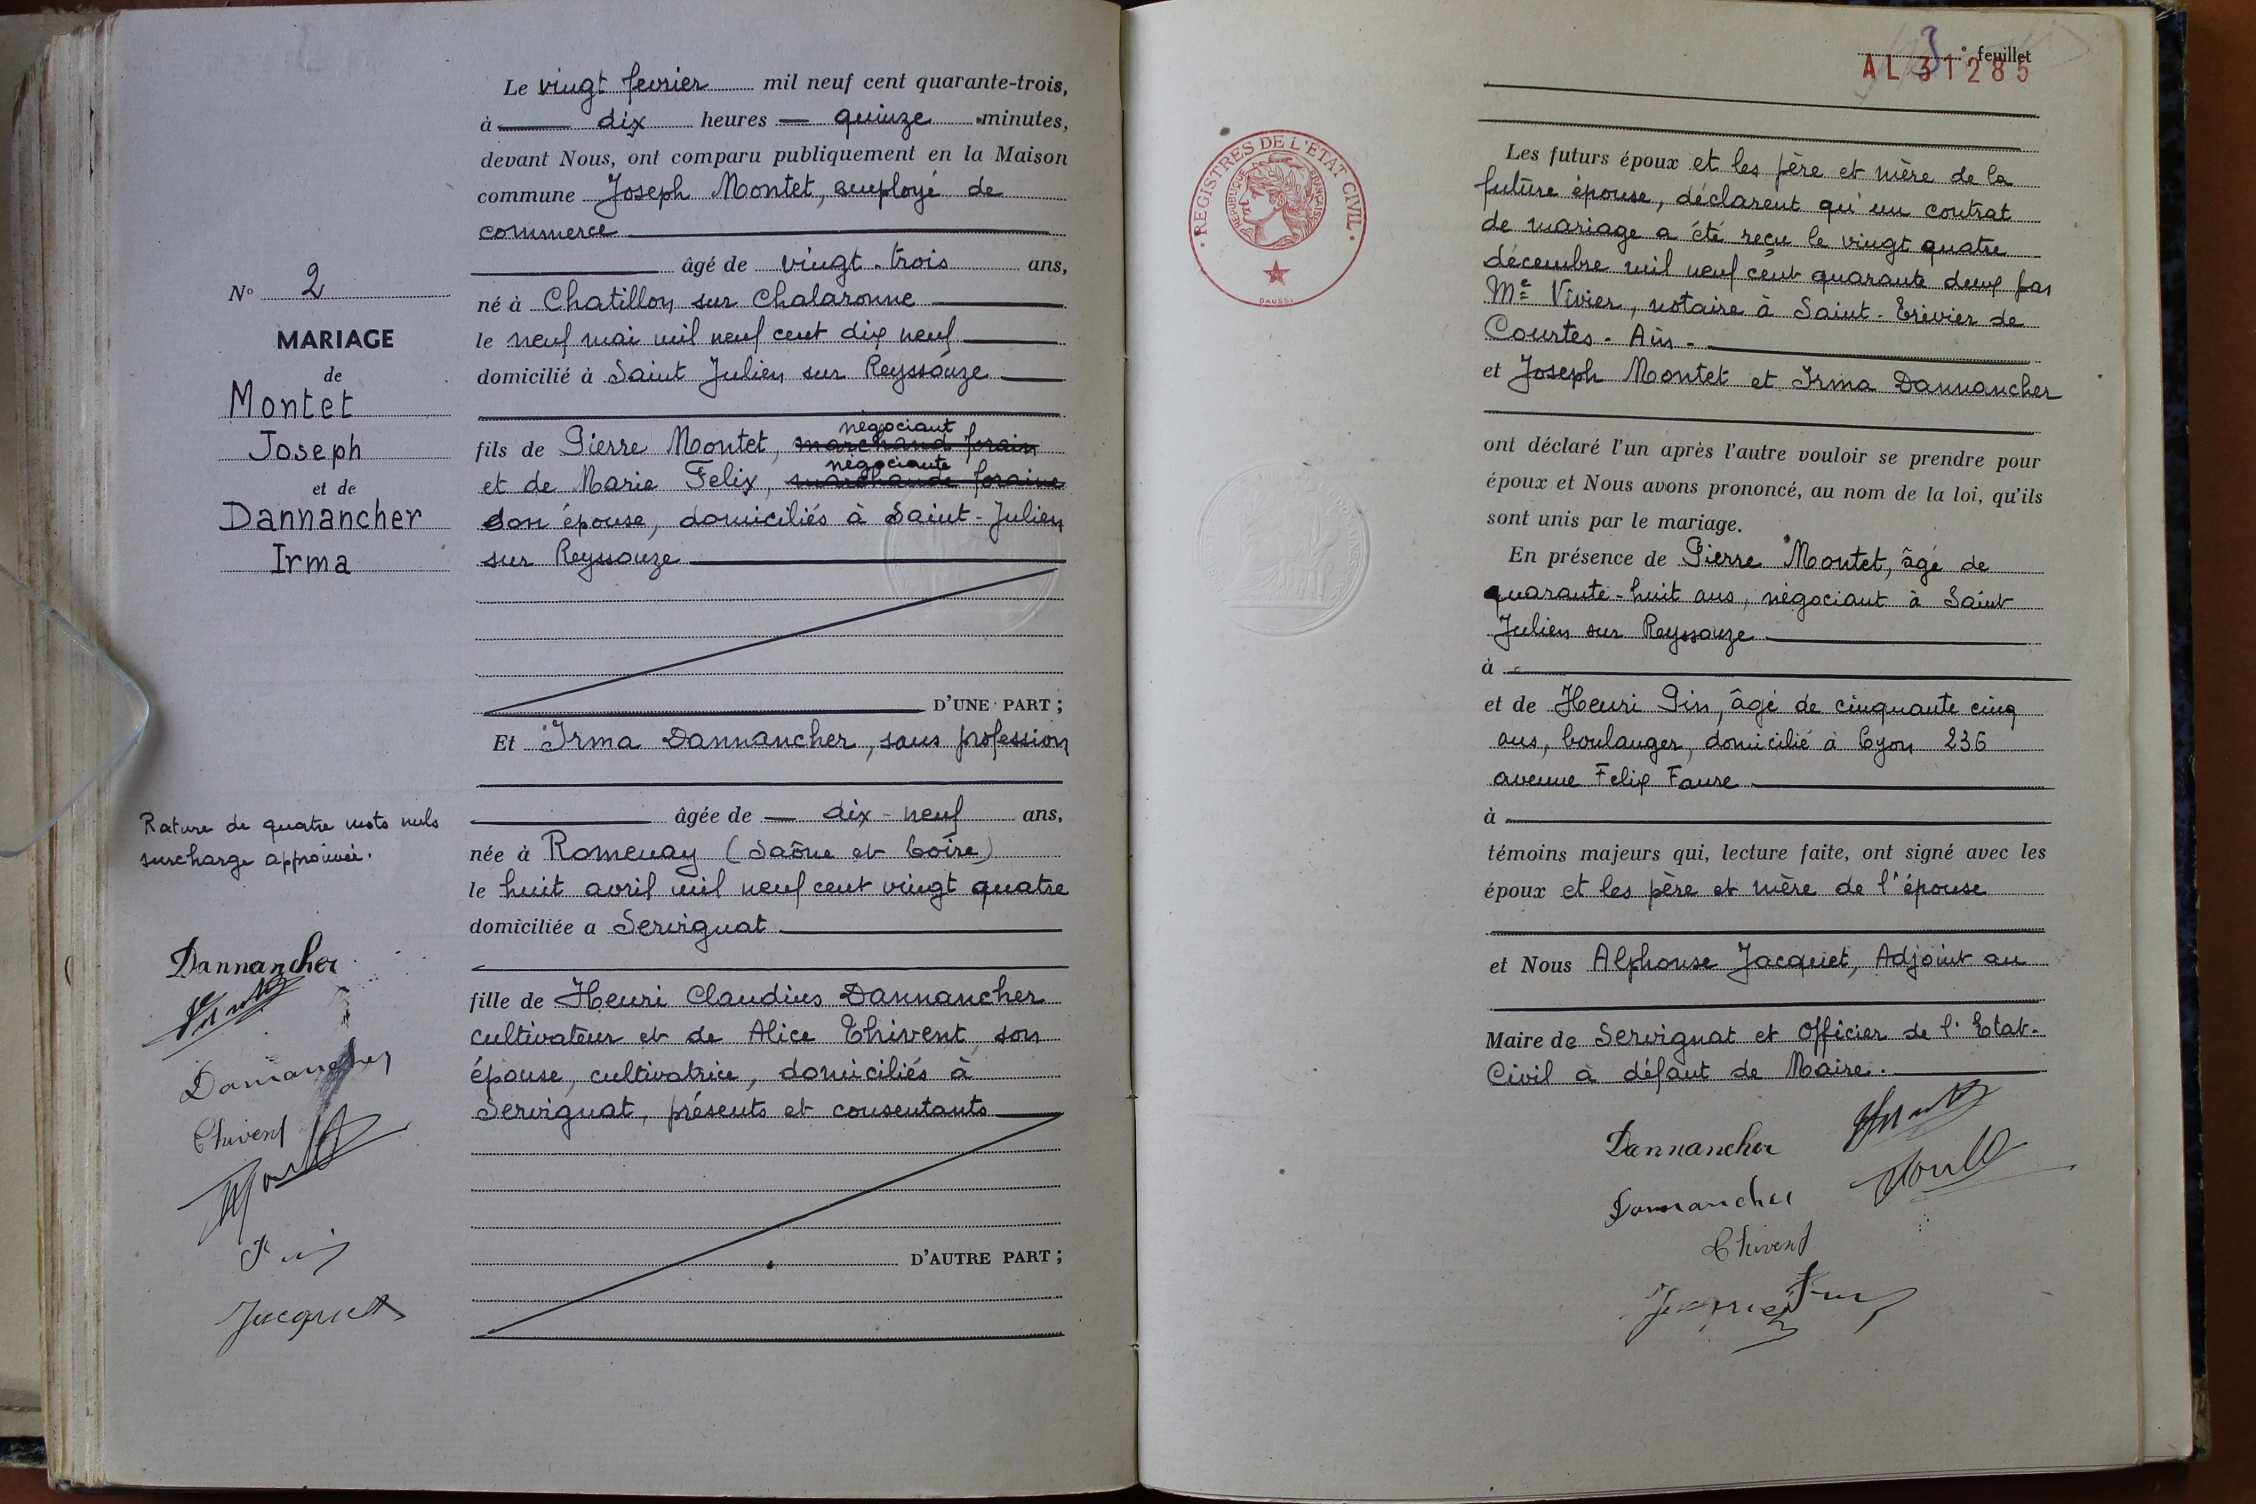 N° 2
MARIAGE
de
Montet
Joseph
et de
Dannancher
Irma
Rature de quatre mots nuls
surcharge approuvée.
Dannancher
Dannancher
Thivent
Montet
Pin
Jacquet
Le vingt fevrier mil neuf cent quarante-trois,
à dix heures quinze minutes,
devant Nous, ont comparu publiquement en la Maison
commune Joseph Montet, employé de
commerce
âgé de vingt-trois ans,
né à Chatillon sur Chalaronne
le neuf mai mil neuf cent dix neuf
domicilié à Saint Julien sur Reyssouze
négociant
fils de Pierre Montet, marchand forain
négociante
et de Marie Felix, marchande foraine
son épouse, domiciliés à Saint-Julien
sur Reyssouze
D'UNE PART ;
Et Irma Dannancher, sans profession
âgée de dix-neuf ans,
née à Romenay (Saône et Loire)
le huit avril mil neuf cent vingt quatre
domiciliée a Servignat
fille de Henri Claudius Dannancher
cultivateur et de Alice Thivent, son
épouse, cultivatrice, domiciliés à
Servignat, présents et consentants
D'AUTRE PART ;
3e feuillet
AL 31285
REGISTRES DE L'ETAT CIVIL
REPUBLIQUE FRANÇAISE
DAUSSI
Les futurs époux et les père et mère de la
future épouse, déclarent qu'un contrat
de mariage a été reçu le vingt quatre
décembre mil neuf cent quarante deux par
Me Vivier, notaire à Saint-Trivier de
Courtes-Ain-
et Joseph Montet et Irma Dannancher
ont déclaré l'un après l'autre vouloir se prendre pour
époux et Nous avons prononcé, au nom de la loi, qu'ils
sont unis par le mariage.
En présence de Pierre Montet, âgé de
quarante-huit ans, négociant à Saint
Julien sur Reyssouze
à
et de Henri Pin, âgé de cinquante cinq
ans, boulanger, domicilié à Lyon 236
avenue Felix Faure
à
témoins majeurs qui, lecture faite, ont signé avec les
époux et les père et mère de l'épouse
et Nous Alphonse Jacquet, Adjoint au
Maire de Servignat et Officier de l'Etat-
Civil à défaut de Maire.
Dannancher
Montet
Dannancher
Thivent
Jacquet Pin